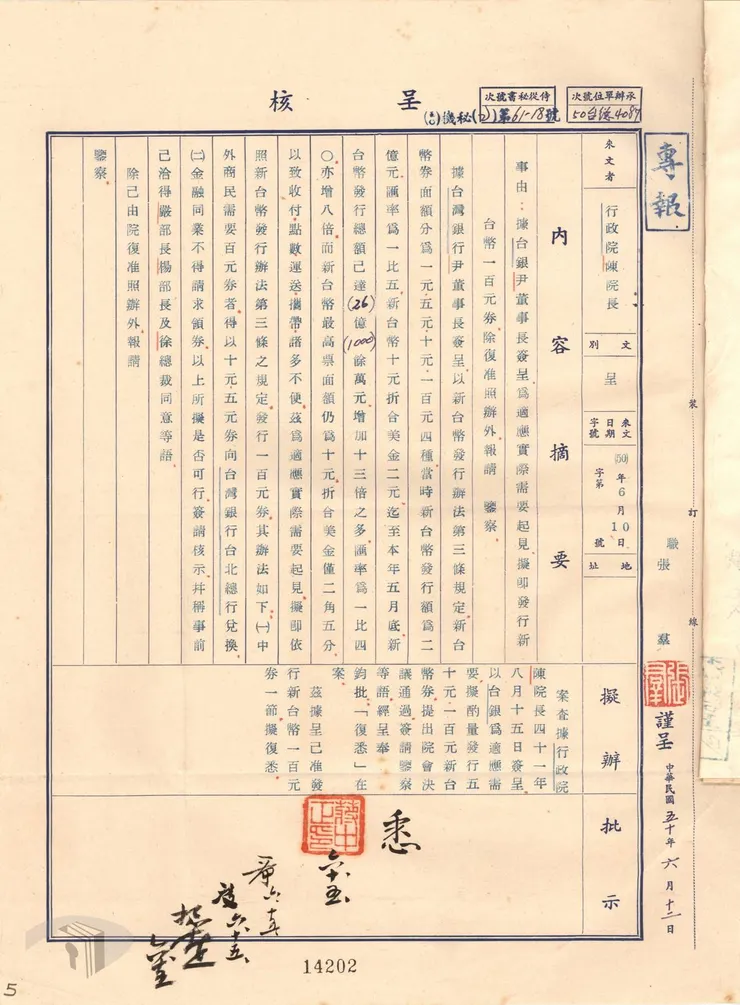 呈核
承辦單位號次
50台送4087
侍從秘書號次
(50)機秘(乙)第61-18號
專報
職張羣
張羣
謹呈
中華民國五十年六月十二日
裝
訂
線
來文者
行政院陳院長
文別
呈
來文日期字號
(50)年6月10日
字第號
地址
內容摘要
事由：據台銀尹董事長簽呈為適應實際需要起見擬即發行新
台幣一百元券除復准照辦外報請鑒察
據台灣銀行尹董事長簽呈以新台幣發行辦法第三條規定新台
幣券面額分為一元五元十元一百元四種當時新台幣發行額為二
億元匯率為一比五新台幣十元折合美金二元迄至本年五月底新
台幣發行總額已達(26)億(1000)餘萬元增加十三倍之多匯率為一比四
○亦增八倍而新台幣最高票面額仍為十元折合美金僅二角五分
以致收付點數運送攜帶諸多不便茲為適應實際需要起見擬即依
照新台幣發行辦法第三條之規定發行一百元券其辦法如下㈠中
外商民需要百元券者得以十元五元券向台灣銀行台北總行兌換
㈡金融同業不得請求領券以上所擬是否可行簽請核示并稱事前
己洽得嚴部長楊部長及徐總裁同意等語
除己由院復准照辦外報請
鑒察
擬辦
案查據行政院
陳院長四十一年
八月十五日簽呈
以台銀為適應需
要擬酌量發行五
十元一百元新台
幣券提出院會決
議通過簽請鑒察
等語經呈奉
鈞批「復悉」在
案
茲據呈己准發
行新台幣一百元
券一節擬復悉
批示
悉
蔣中正印
六、十五、
六、十五
六、十五
14202
5